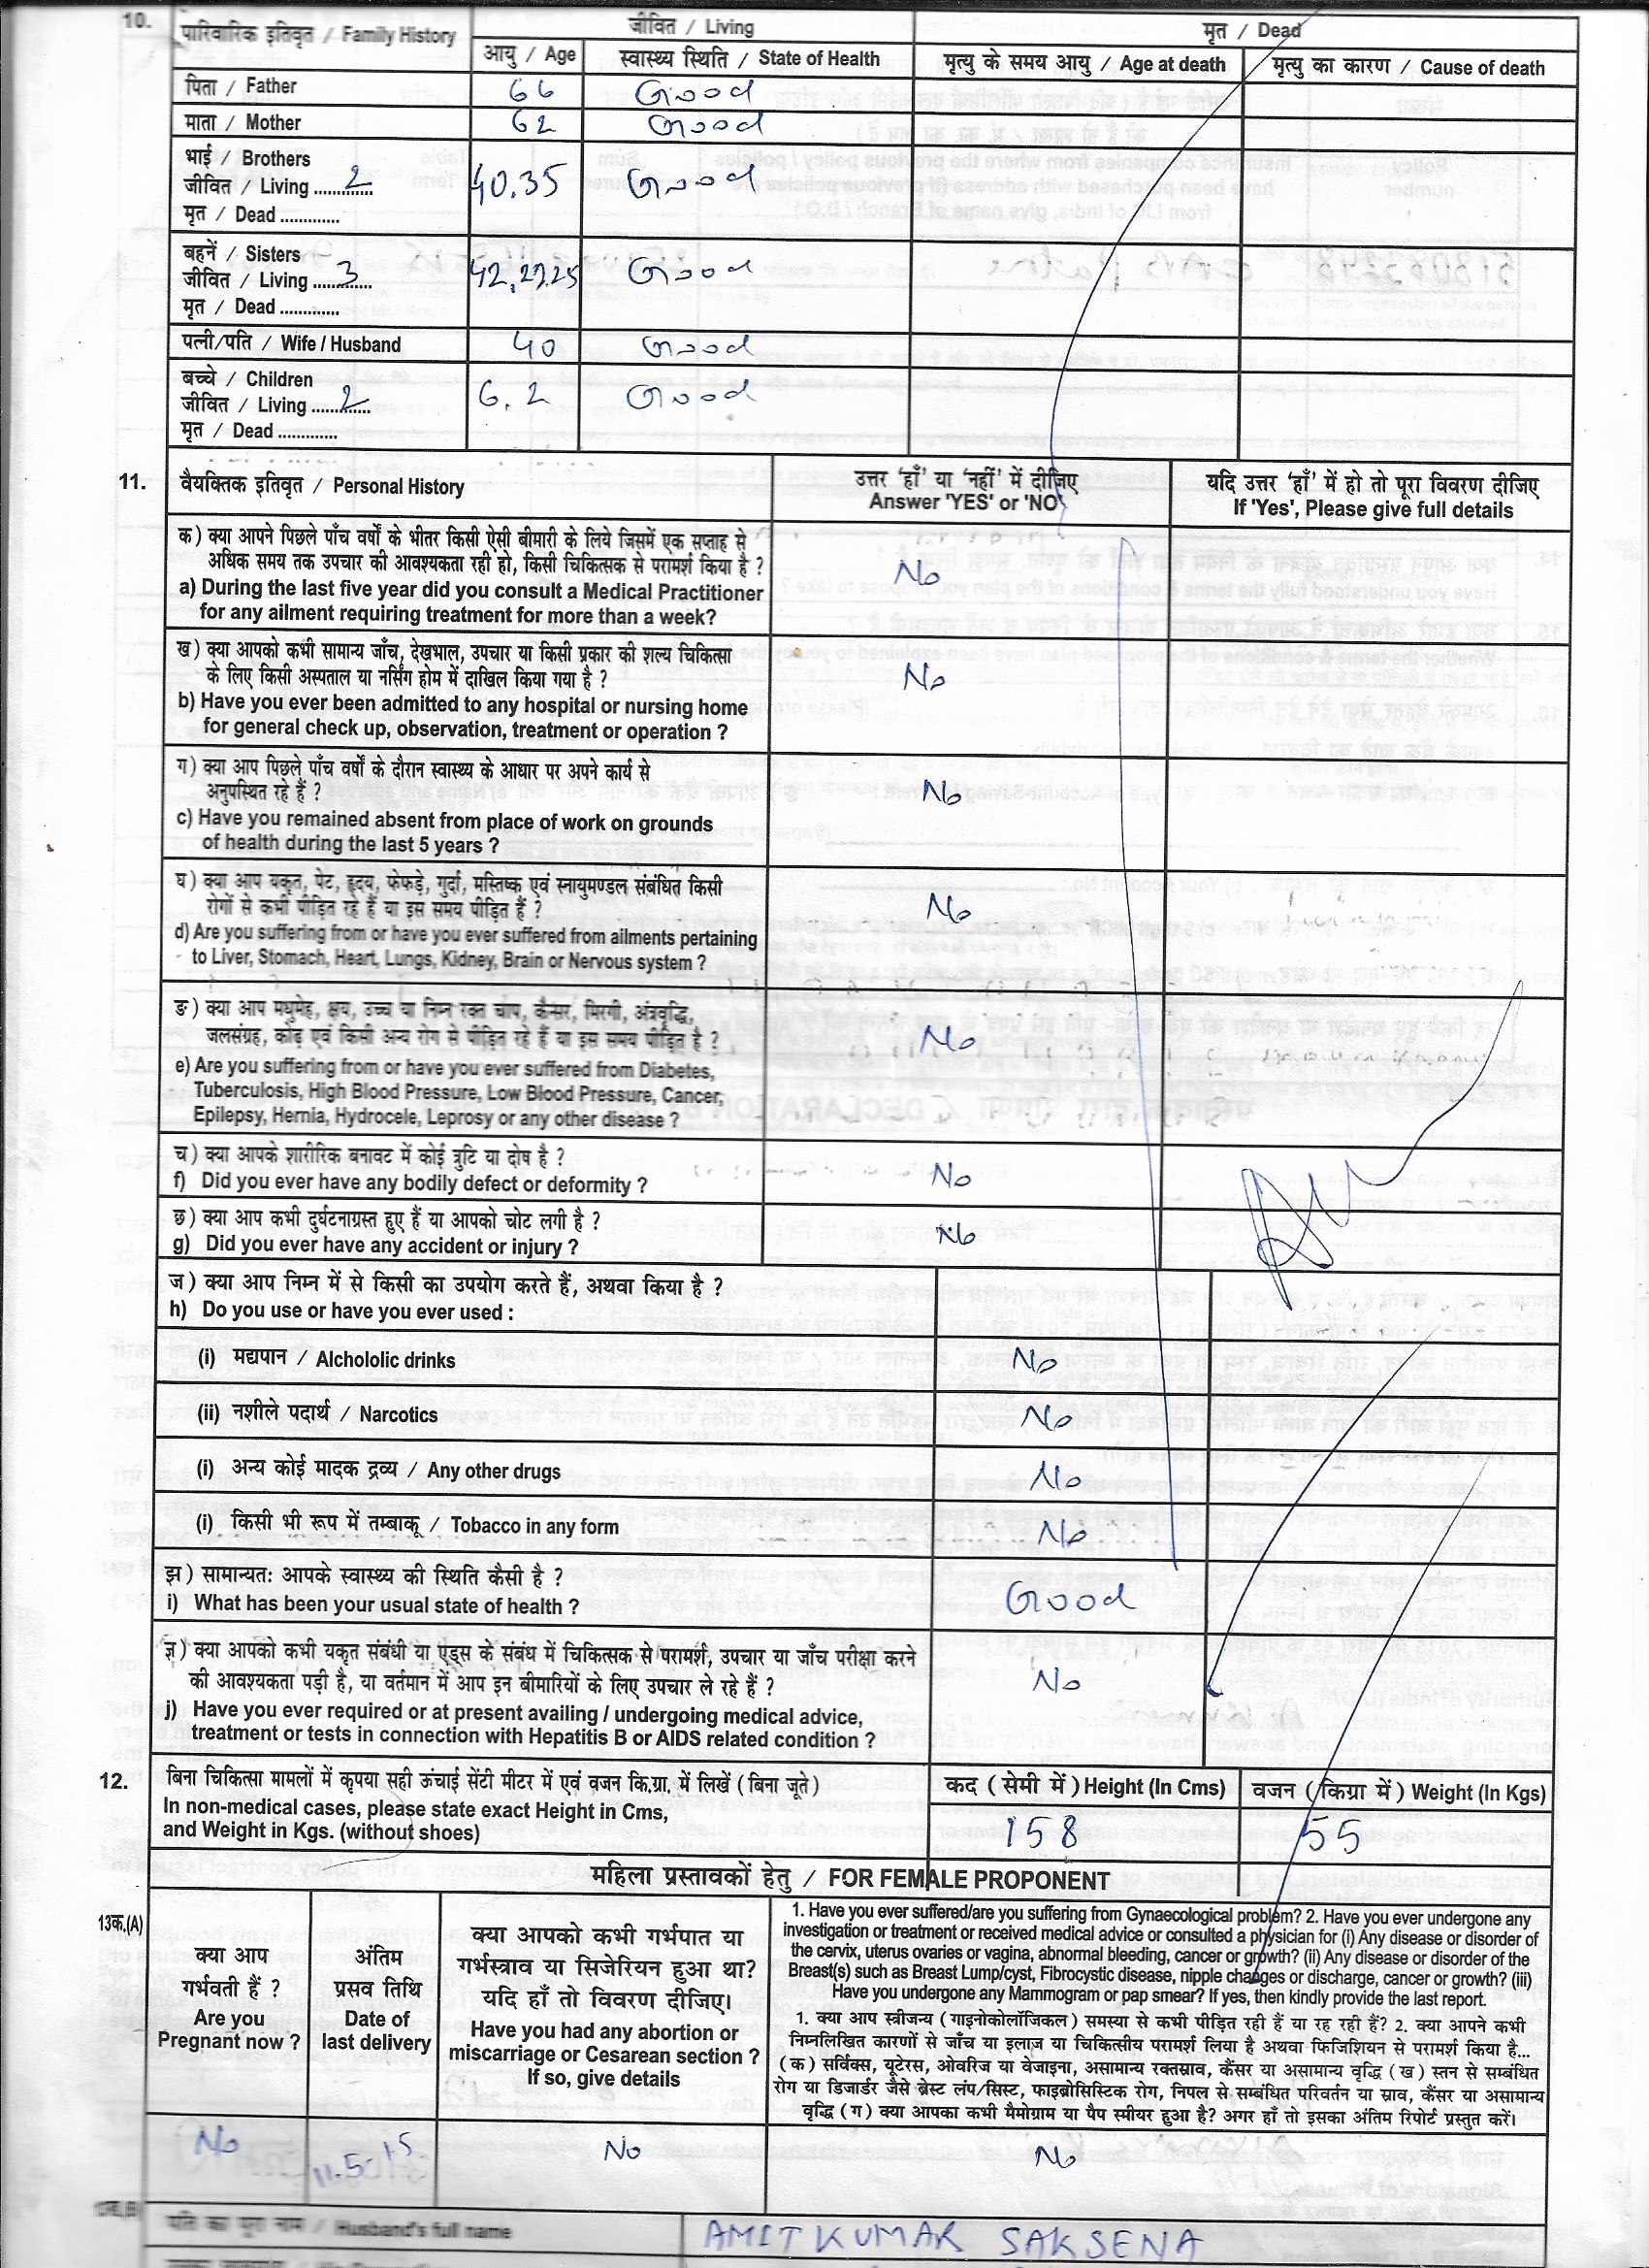 10.
पारिवारिक इतिवृत / Family History
जीवित / Living
मृत / Dead
आयु / Age
स्वास्थ्य स्थिति / State of Health
मृत्यु के समय आयु / Age at death
मृत्यु का कारण / Cause of death
पिता / Father 66 Good
माता / Mother 62 Good
भाई / Brothers
जीवित / Living ......2...... 40.35 Good
मृत / Dead .............
बहनें / Sisters
जीवित / Living ......3...... 42,27.25 Good
मृत / Dead .............
पत्नी/पति / Wife / Husband 40 Good
बच्चे / Children
जीवित / Living ......2...... 6.2 Good
मृत / Dead .............
11. वैयक्तिक इतिवृत / Personal History
उत्तर ‘हाँ’ या ‘नहीं’ में दीजिए
Answer 'YES' or 'NO'
यदि उत्तर ‘हाँ’ में हो तो पूरा विवरण दीजिए
If 'Yes', Please give full details
क) क्या आपने पिछले पाँच वर्षों के भीतर किसी ऐसी बीमारी के लिये जिसमें एक सप्ताह से
अधिक समय तक उपचार की आवश्यकता रही हो, किसी चिकित्सक से परामर्श किया है ?
a) During the last five year did you consult a Medical Practitioner
for any ailment requiring treatment for more than a week?
No
ख) क्या आपको कभी सामान्य जाँच, देखभाल, उपचार या किसी प्रकार की शल्य चिकित्सा
के लिए किसी अस्पताल या नर्सिंग होम में दाखिल किया गया है ?
b) Have you ever been admitted to any hospital or nursing home
for general check up, observation, treatment or operation ?
No
ग) क्या आप पिछले पाँच वर्षों के दौरान स्वास्थ्य के आधार पर अपने कार्य से
अनुपस्थित रहे हैं ?
c) Have you remained absent from place of work on grounds
of health during the last 5 years ?
No
घ) क्या आप यकृत, पेट, हृदय, फेफड़े, गुर्दा, मस्तिष्क एवं स्नायुमण्डल संबंधित किसी
रोगों से कभी पीड़ित रहे हैं या इस समय पीड़ित हैं ?
d) Are you suffering from or have you ever suffered from ailments pertaining
to Liver, Stomach, Heart, Lungs, Kidney, Brain or Nervous system ?
No
ङ) क्या आप मधुमेह, क्षय, उच्च या निम्न रक्त चाप, कैंसर, मिरगी, अंत्रवृद्धि,
जलसंग्रह, कोढ़ एवं किसी अन्य रोग से पीड़ित रहे हैं या इस समय पीड़ित है ?
e) Are you suffering from or have you ever suffered from Diabetes,
Tuberculosis, High Blood Pressure, Low Blood Pressure, Cancer,
Epilepsy, Hernia, Hydrocele, Leprosy or any other disease ?
No
च) क्या आपके शारीरिक बनावट में कोई त्रुटि या दोष है ?
f) Did you ever have any bodily defect or deformity ?
No
छ) क्या आप कभी दुर्घटनाग्रस्त हुए हैं या आपको चोट लगी है ?
g) Did you ever have any accident or injury ?
No
ज) क्या आप निम्न में से किसी का उपयोग करते हैं, अथवा किया है ?
h) Do you use or have you ever used :
(i) मद्यपान / Alchololic drinks No
(ii) नशीले पदार्थ / Narcotics No
(i) अन्य कोई मादक द्रव्य / Any other drugs No
(i) किसी भी रूप में तम्बाकू / Tobacco in any form No
झ) सामान्यतः आपके स्वास्थ्य की स्थिति कैसी है ?
i) What has been your usual state of health ?
Good
ञ) क्या आपको कभी यकृत संबंधी या एड्स के संबंध में चिकित्सक से परामर्श, उपचार या जाँच परीक्षा करने
की आवश्यकता पड़ी है, या वर्तमान में आप इन बीमारियों के लिए उपचार ले रहे हैं ?
j) Have you ever required or at present availing / undergoing medical advice,
treatment or tests in connection with Hepatitis B or AIDS related condition ?
No
12. बिना चिकित्सा मामलों में कृपया सही ऊंचाई सेंटी मीटर में एवं वजन कि.ग्रा. में लिखें (बिना जूते)
In non-medical cases, please state exact Height in Cms,
and Weight in Kgs. (without shoes)
कद ( सेमी में ) Height (In Cms)
वजन ( किग्रा में ) Weight (In Kgs)
158
55
महिला प्रस्तावकों हेतु / FOR FEMALE PROPONENT
13क.(A)
क्या आप
गर्भवती हैं ?
Are you
Pregnant now ?
अंतिम
प्रसव तिथि
Date of
last delivery
क्या आपको कभी गर्भपात या
गर्भस्त्राव या सिजेरियन हुआ था?
यदि हाँ तो विवरण दीजिए।
Have you had any abortion or
miscarriage or Cesarean section ?
If so, give details
1. Have you ever suffered/are you suffering from Gynaecological problem? 2. Have you ever undergone any
investigation or treatment or received medical advice or consulted a physician for (i) Any disease or disorder of
the cervix, uterus ovaries or vagina, abnormal bleeding, cancer or growth? (ii) Any disease or disorder of the
Breast(s) such as Breast Lump/cyst, Fibrocystic disease, nipple changes or discharge, cancer or growth? (iii)
Have you undergone any Mammogram or pap smear? If yes, then kindly provide the last report.
1. क्या आप स्त्रीजन्य (गाइनोकोलॉजिकल) समस्या से कभी पीड़ित रही हैं या रह रही हैं? 2. क्या आपने कभी
निम्नलिखित कारणों से जाँच या इलाज या चिकित्सीय परामर्श लिया है अथवा फिजिशियन से परामर्श किया है...
(क) सर्विक्स, यूटेरस, ओवरिज या वेजाइना, असामान्य रक्तस्राव, कैंसर या असामान्य वृद्धि (ख) स्तन से सम्बंधित
रोग या डिजार्डर जैसे ब्रेस्ट लंप/सिस्ट, फाइब्रोसिस्टिक रोग, निपल से सम्बंधित परिवर्तन या स्राव, कैंसर या असामान्य
वृद्धि (ग) क्या आपका कभी मैमोग्राम या पैप स्मीयर हुआ है? अगर हाँ तो इसका अंतिम रिपोर्ट प्रस्तुत करें।
No 11.5-15 No No
13क.(B)
पति का पूरा नाम / Husband's full name AMIT KUMAR SAKSENA